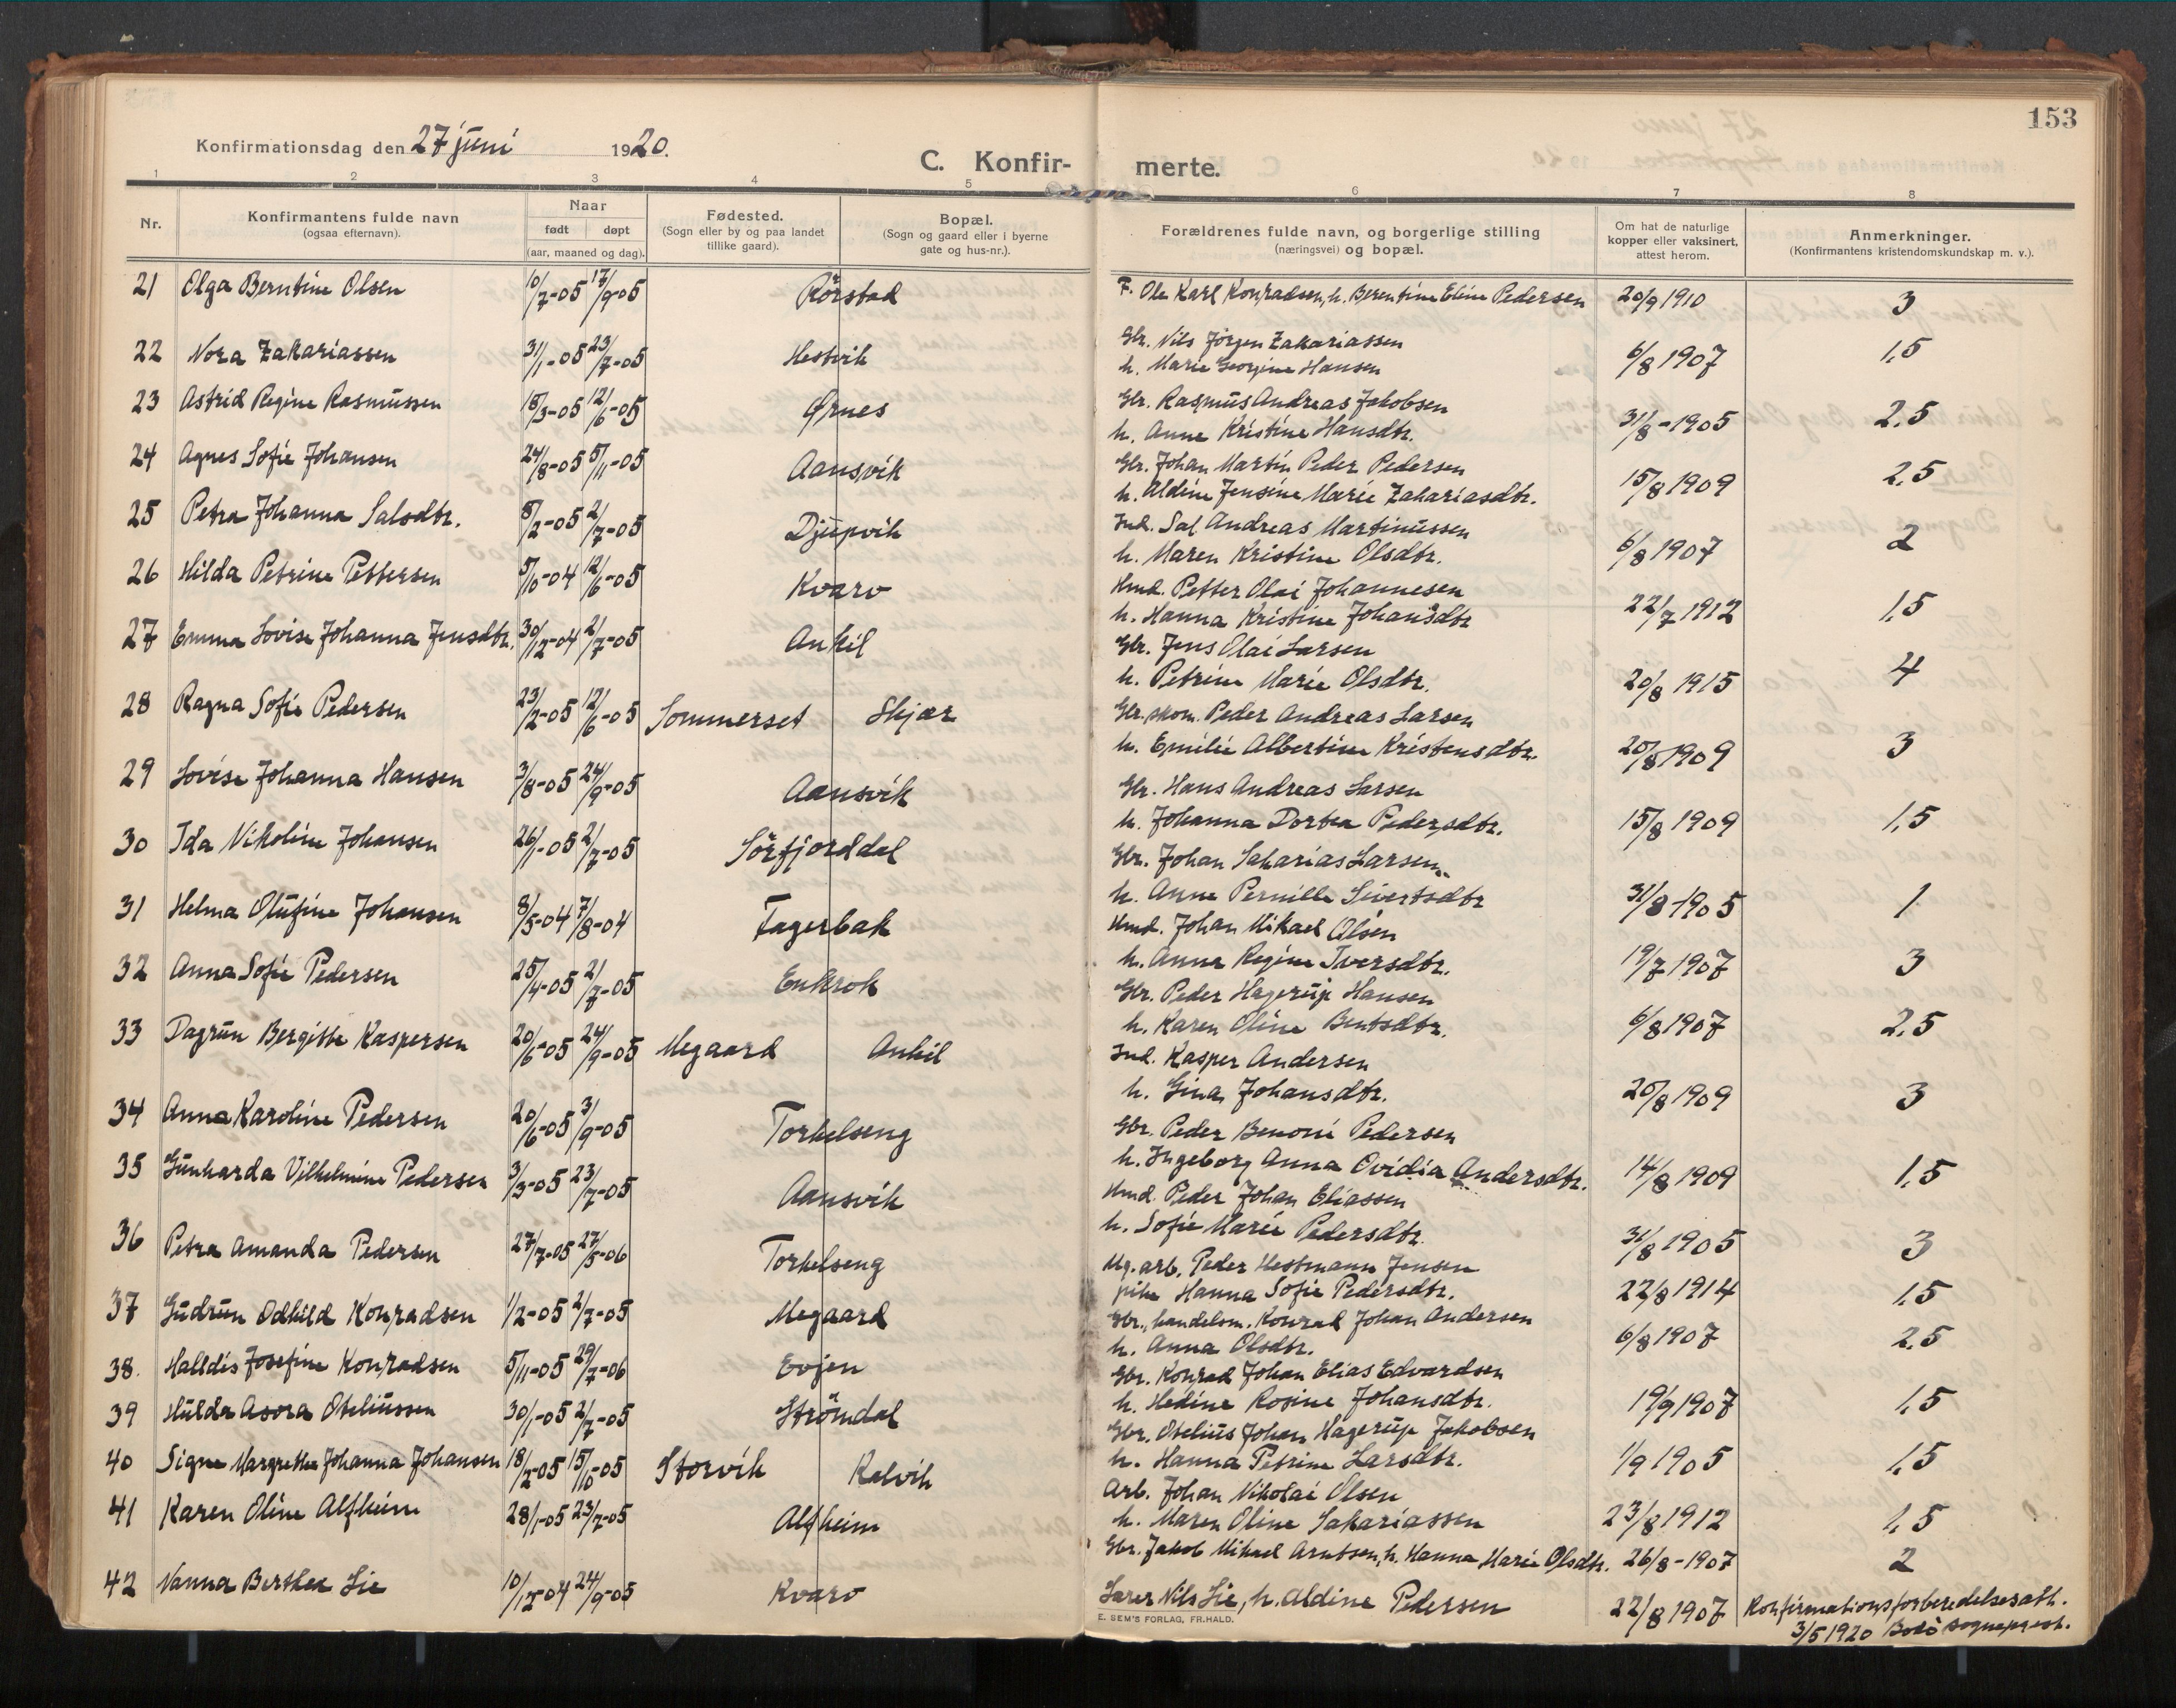 153
Konfirmationsdag den 27 juni 1920.
C. Konfirmerte.
1 2 3 4 5 6 7 8
Nr. | Konfirmantens fulde navn (ogsaa efternavn). | Naar født døpt (aar, maaned og dag). | Fødested. (Sogn eller by og paa landet tillike gaard). | Bopæl. (Sogn og gaard eller i byerne gate og hus-nr.). | Forældrenes fulde navn, og borgerlige stilling (næringsvei) og bopæl. | Om hat de naturlige kopper eller vaksinert, attest herom. | Anmerkninger. (Konfirmantens kristendomskundskap m. v.).
21 Olga Berntine Olsen 10/7-05 17/9-05 Rörstad F. Ole Karl Konradsen, h. Berentine Eline Pedersen 20/9 1910 3
22 Nora Zakariassen 31/1-05 23/7-05 Hestvik Gbr. Nils Jörgen Zakariassen
h. Marie Georgine Hansen 6/8 1907 1,5
23 Astrid Regine Rasmussen 18/3-05 12/6-05 Ørnes Gbr. Rasmus Andreas Jakobsen
h. Anne Kristine Hansdtr. 31/8-1905 2,5
24 Agnes Sofie Johansen 24/8-05 5/11-05 Aansvik Gbr. Johan Martin Peder Pedersen
h. Aldine Jensine Marie Zakariasdtr. 15/8 1909 2,5
25 Petra Johanna Salsdtr. 8/2-05 2/7-05 Djupvik Ind. Sal Andreas Martinussen
h. Maren Kristine Olsdtr. 6/8 1907 2
26 Hilda Petrine Pettersen 5/10-04 12/6-05 Kvarv Hmd. Petter Olai Johannesen
h. Hanna Kristine Johansdtr 22/7 1912 1,5
27 Emma Lovise Johanna Jensdtr. 30/12-04 2/7-05 Ankil Gbr. Jens Olai Larsen
h. Petrine Marie Olsdtr. 20/8 1915 4
28 Ragna Sofie Pedersen 23/2-05 12/6-05 Sommerset Skjær Gbr. skom. Peder Andreas Larsen
h. Emilie Albertine Kristensdtr. 20/8 1909 3
29 Lovise Johanna Hansen 3/8-05 24/9-05 Aansvik Gbr. Hans Andreas Larsen
h. Johanna Dortea Pedersdtr. 15/8 1909 1,5
30 Ida Nikoline Johansen 26/1-05 2/7-05 Sörfjorddal Gbr. Johan Sakarias Larsen
h. Anne Pernille Sivertsdtr 31/8-1905 1
31 Helma Olufine Johansen 8/5-04 7/8-04 Fagerbak Hmd. Johan Mikael Olsen
h. Anna Regine Iversdtr. 19/7 1907 3
32 Anna Sofie Pedersen 25/4-05 2/7-05 Enkrok Gbr. Peder Hagerup Hansen
h. Karen Oline Bentsdtr. 6/8 1907 2,5
33 Dagrun Bergitte Kaspersen 20/6-05 24/9-05 Megaard Ankil Ind. Kasper Andersen
h. Gina Johansdtr. 20/8 1909 3
34 Anna Karoline Pedersen 20/6-05 3/9-05 Torkelseng Gbr. Peder Benoni Pedersen
h. Ingeborg Anna Ovidia Andersdtr. 14/8 1909 1,5
35 Gunharda Vilhelmine Pedersen 3/3-05 23/7-05 Aansvik Hmd. Peder Johan Eliassen
h. Sofie Marie Pedersdtr. 31/8 1905 3
36 Petra Amanda Pedersen 27/7-05 27/5-06 Torkelseng Ug. arb. Peder Hestmann Jensen
pike Hanna Sofie Pedersdtr. 22/8 1914 1,5
37 Gudrun Odhild Konradsen 1/2-05 2/7-05 Megaard Gbr., handelsm. Konrad Johan Andersen
h. Anna Olsdtr. 6/8 1907 2,5
38. Halldis Josefine Konradsen 5/11-05 29/7-06 Evjen Gbr. Konrad Johan Elias Edvardsen
h. Hedine Rosine Johansdtr. 19/9 1907 1,5
39 Hulda Asora Oteliussen 30/1-05 2/7-05 Strömdal Gbr. Otelius Johan Hagerup Jakobsen
h. Hanna Petrine Larsdtr. 1/9 1905 1,5
40 Signe Margrethe Johanna Johansen 18/2-05 15/10-05 Storvik Kalvik Arb. Johan Nikolai Olsen
h. Maren Oline Sakariassen 23/8 1912 1,5
41 Karen Oline Alfheim 28/1-05 23/7-05 Alfheim Gbr. Jakob Mikael Arntsen, h. Hanna Marie Olsdtr. 26/8-1907 2
42 Nanna Berthea Lie 10/12-04 24/9-05 Kvarv Lærer Nils Lie, h. Aldine Pedersen 22/8 1907 Konfirmationsforberedelsesatt.
3/5 1920 Bodö sogneprest.
E. SEM'S FORLAG, FR.HALD.